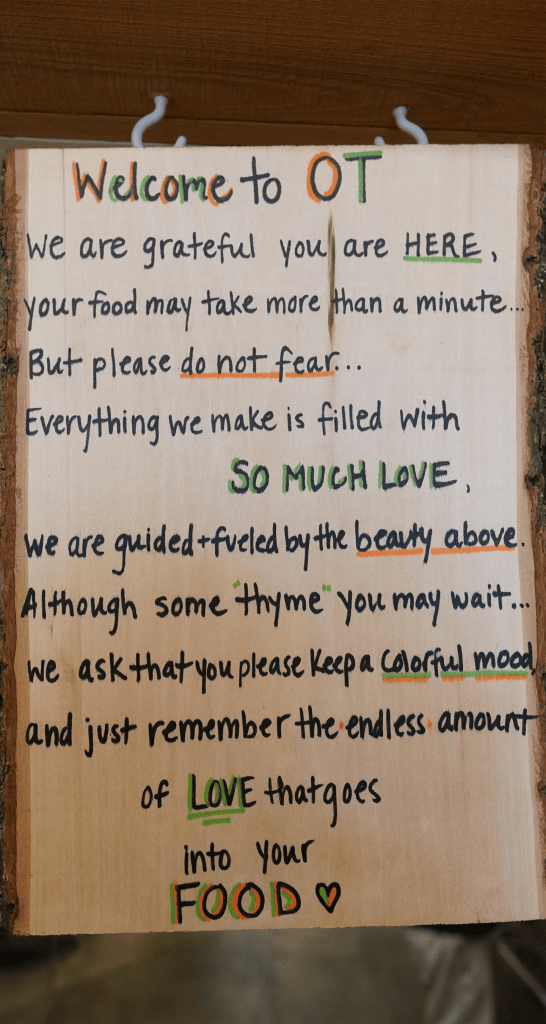 Welcome to OT
We are grateful you are HERE,
your food may take more than a minute...
But please do not fear...
Everything we make is filled with
SO MUCH LOVE,
we are guided + fueled by the beauty above.
Although some "thyme" you may wait...
we ask that you please keep a colorful mood,
and just remember the endless amount
of LOVE that goes
into your
FOOD ♡